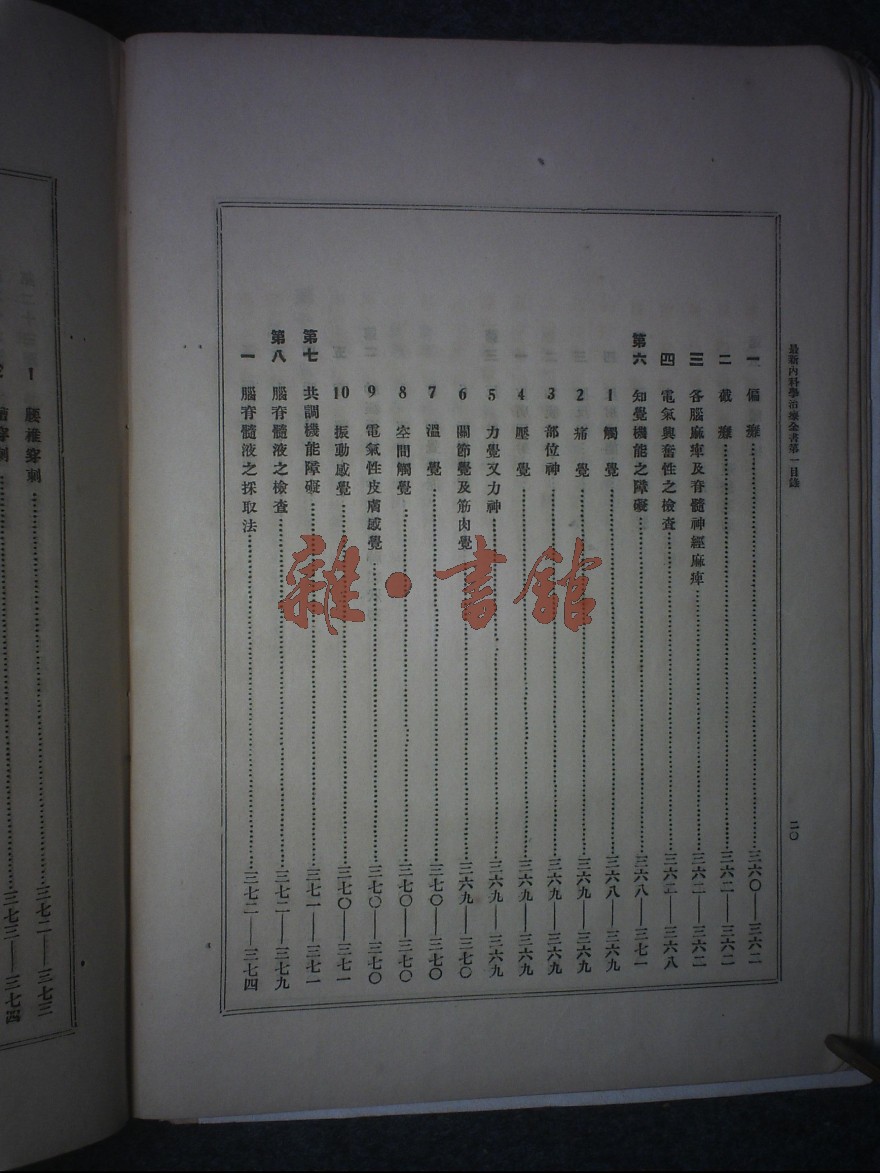 最新內科學治療全書第一目錄
二〇
一 偏癱……三六〇——三六二
二 截癱……三六二——三六二
三 各腦麻痺及脊髓神經麻痺……三六二——三六二
四 電氣興奮性之檢查……三六二——三六八
第六 知覺機能之障礙……三六八——三七一
1 觸覺……三六八——三六九
2 痛覺……三六九——三六九
3 部位神……三六九——三六九
4 壓覺……三六九——三六九
5 力覺又力神……三六九——三六九
6 關節覺及筋肉覺……三六九——三七〇
7 溫覺……三七〇——三七〇
8 空間觸覺……三七〇——三七〇
9 電氣性皮膚感覺……三七〇——三七〇
10 振動感覺……三七〇——三七一
第七 共調機能障礙……三七一——三七一
第八 腦脊髓液之檢查……三七二——三七九
一 腦脊髓液之採取法……三七二——三七四
1 腰椎穿刺……三七二——三七三
2 穿刺……三七三——三七四
雜·書館